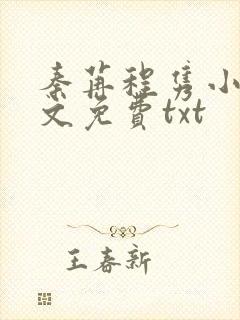 秦苒程隽小
文免費txt
王春新